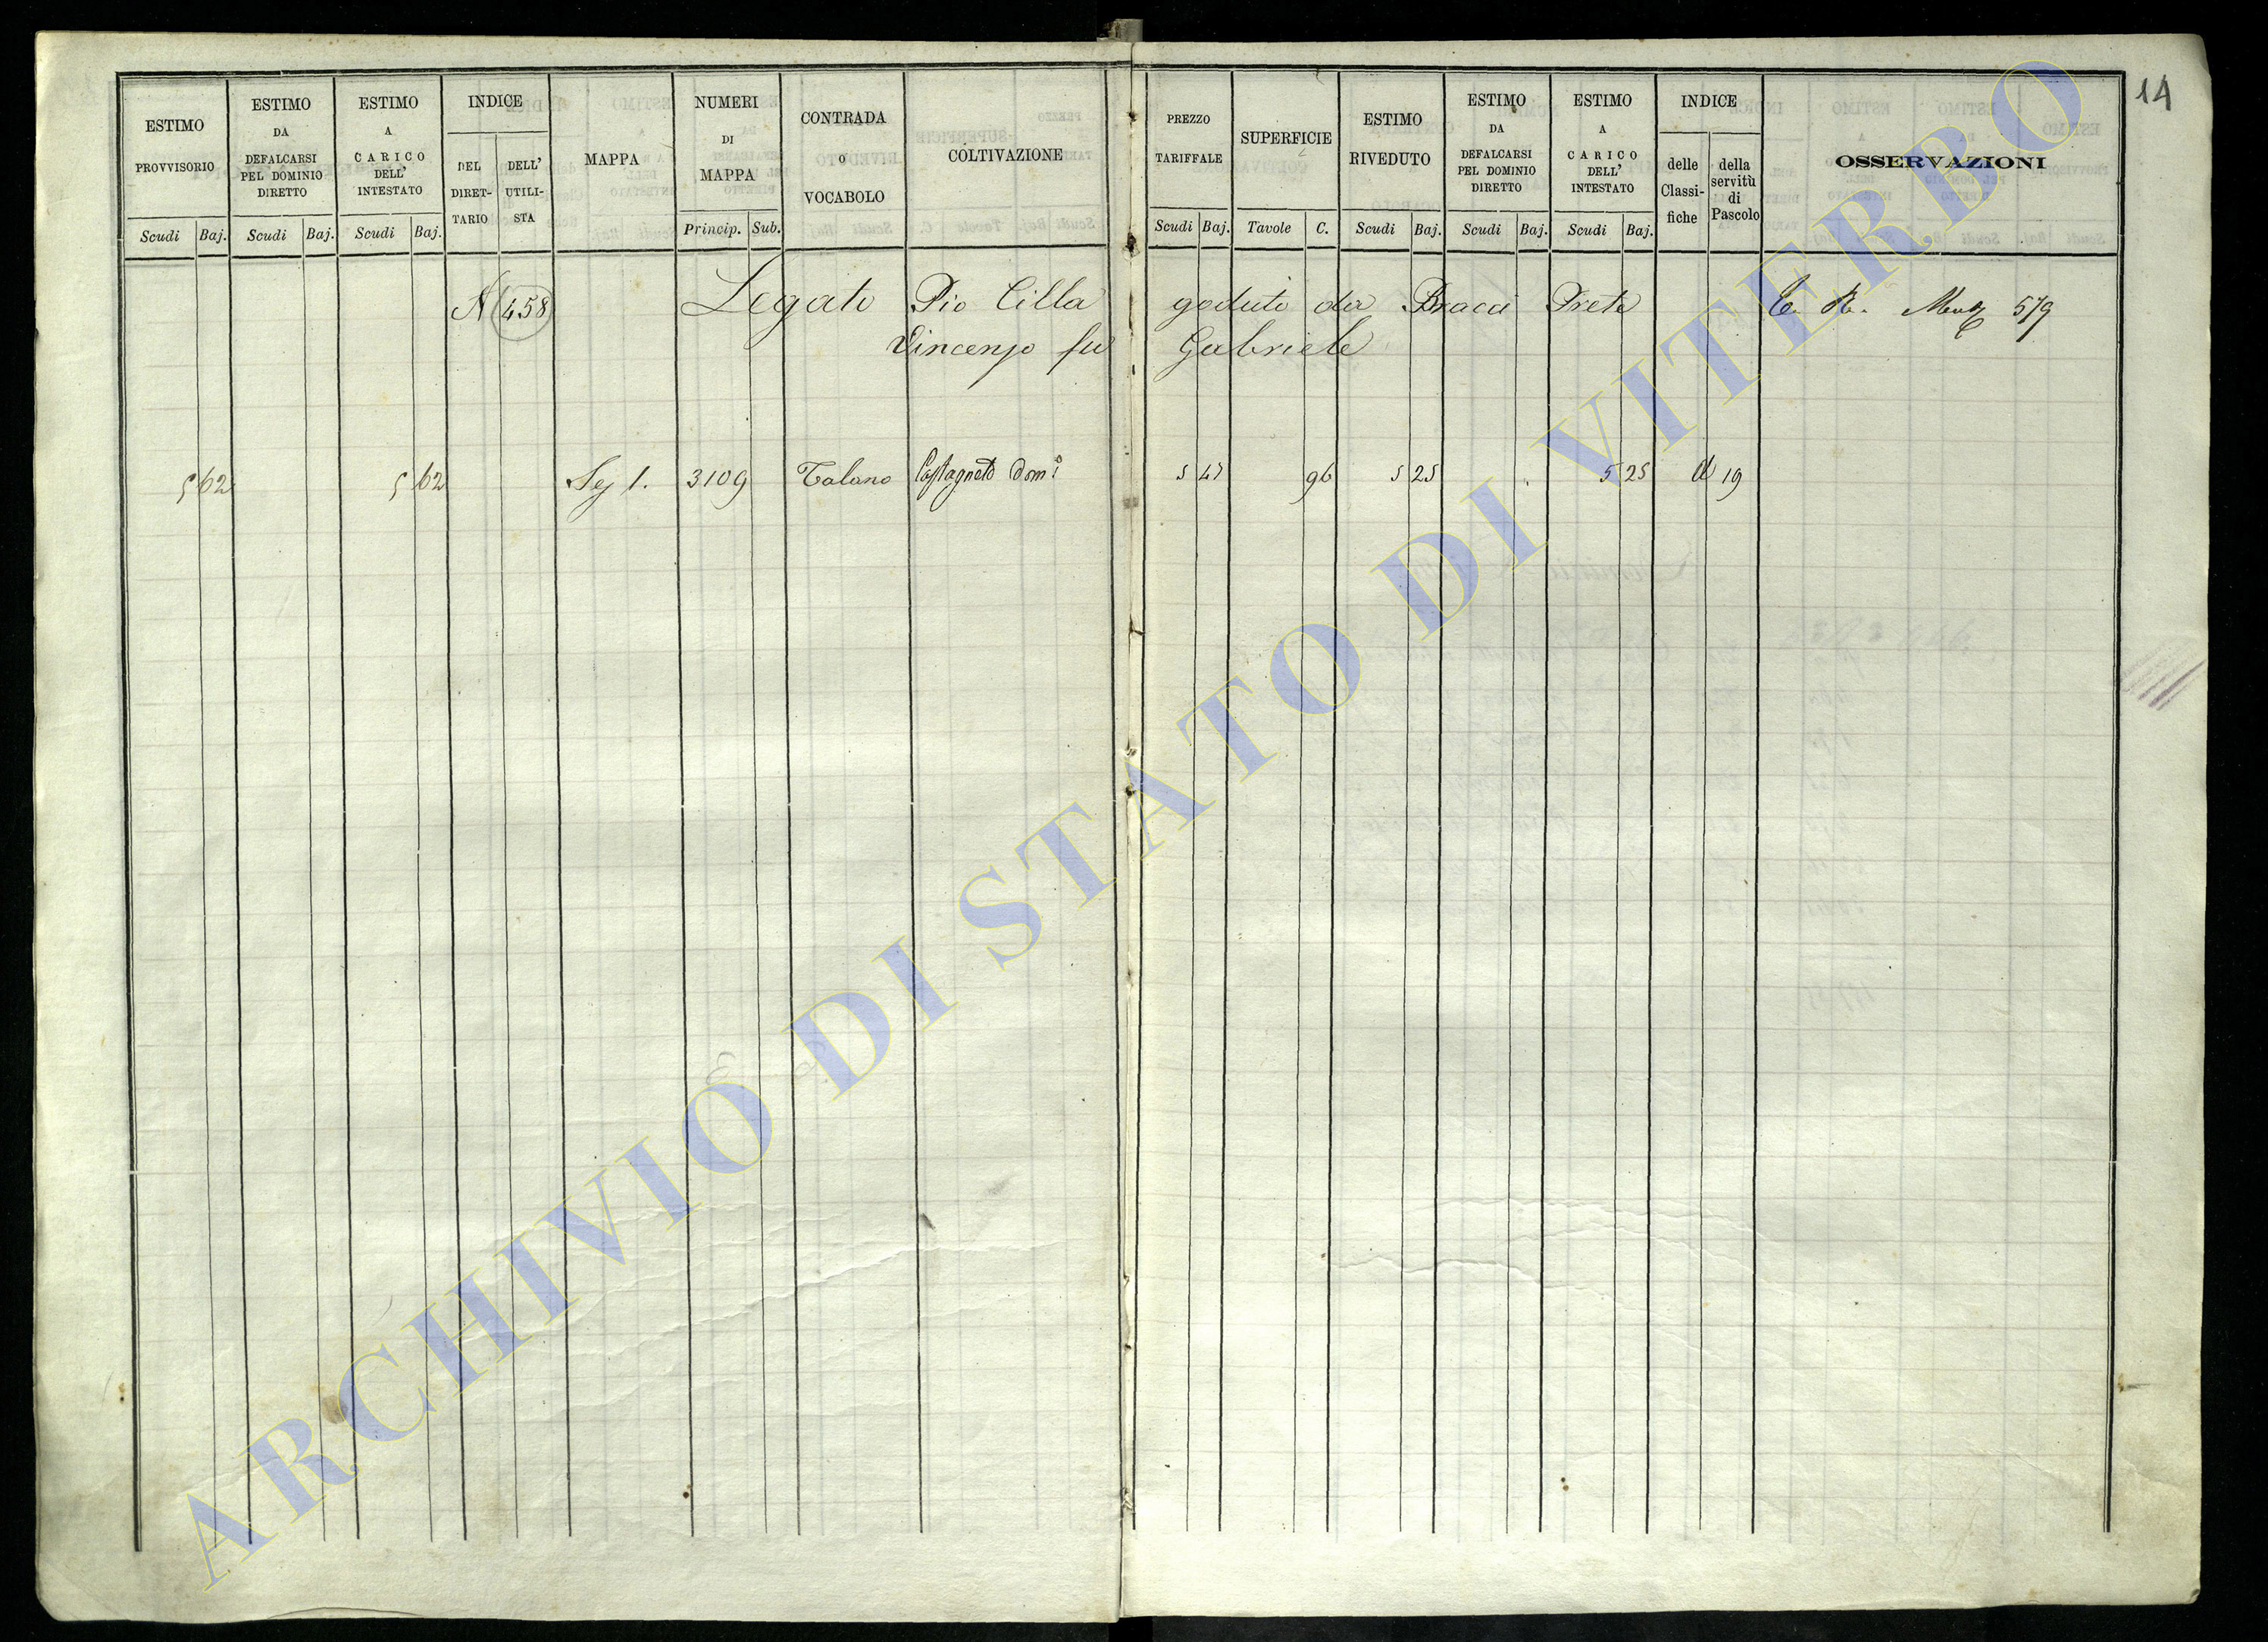 14
ESTIMO PROVVISORIO
Scudi Baj.
ESTIMO DA DEFALCARSI PEL DOMINIO DIRETTO
Scudi Baj.
ESTIMO A CARICO DELL' INTESTATO
Scudi Baj.
INDICE
DEL DIRET-TARIO
DELL' UTILI-STA
MAPPA
NUMERI DI MAPPA
Princip. Sub.
CONTRADA O VOCABOLO
COLTIVAZIONE
PREZZO TARIFFALE
Scudi Baj.
SUPERFICIE
Tavole C.
ESTIMO RIVEDUTO
Scudi Baj.
ESTIMO DA DEFALCARSI PEL DOMINIO DIRETTO
Scudi Baj.
ESTIMO A CARICO DELL' INTESTATO
Scudi Baj.
INDICE
delle Classi-fiche
della servitù di Pascolo
OSSERVAZIONI
N 458 Legato Pio Cilla goduto da Bracci Prete 579
Vincenzo fu Gabriele
5 62 5 62 Sez 1. 3109 Talano Castagneto Dom 5 47 96 5 25 5 25 d 19
ARCHIVIO DI STATO DI VITERBO